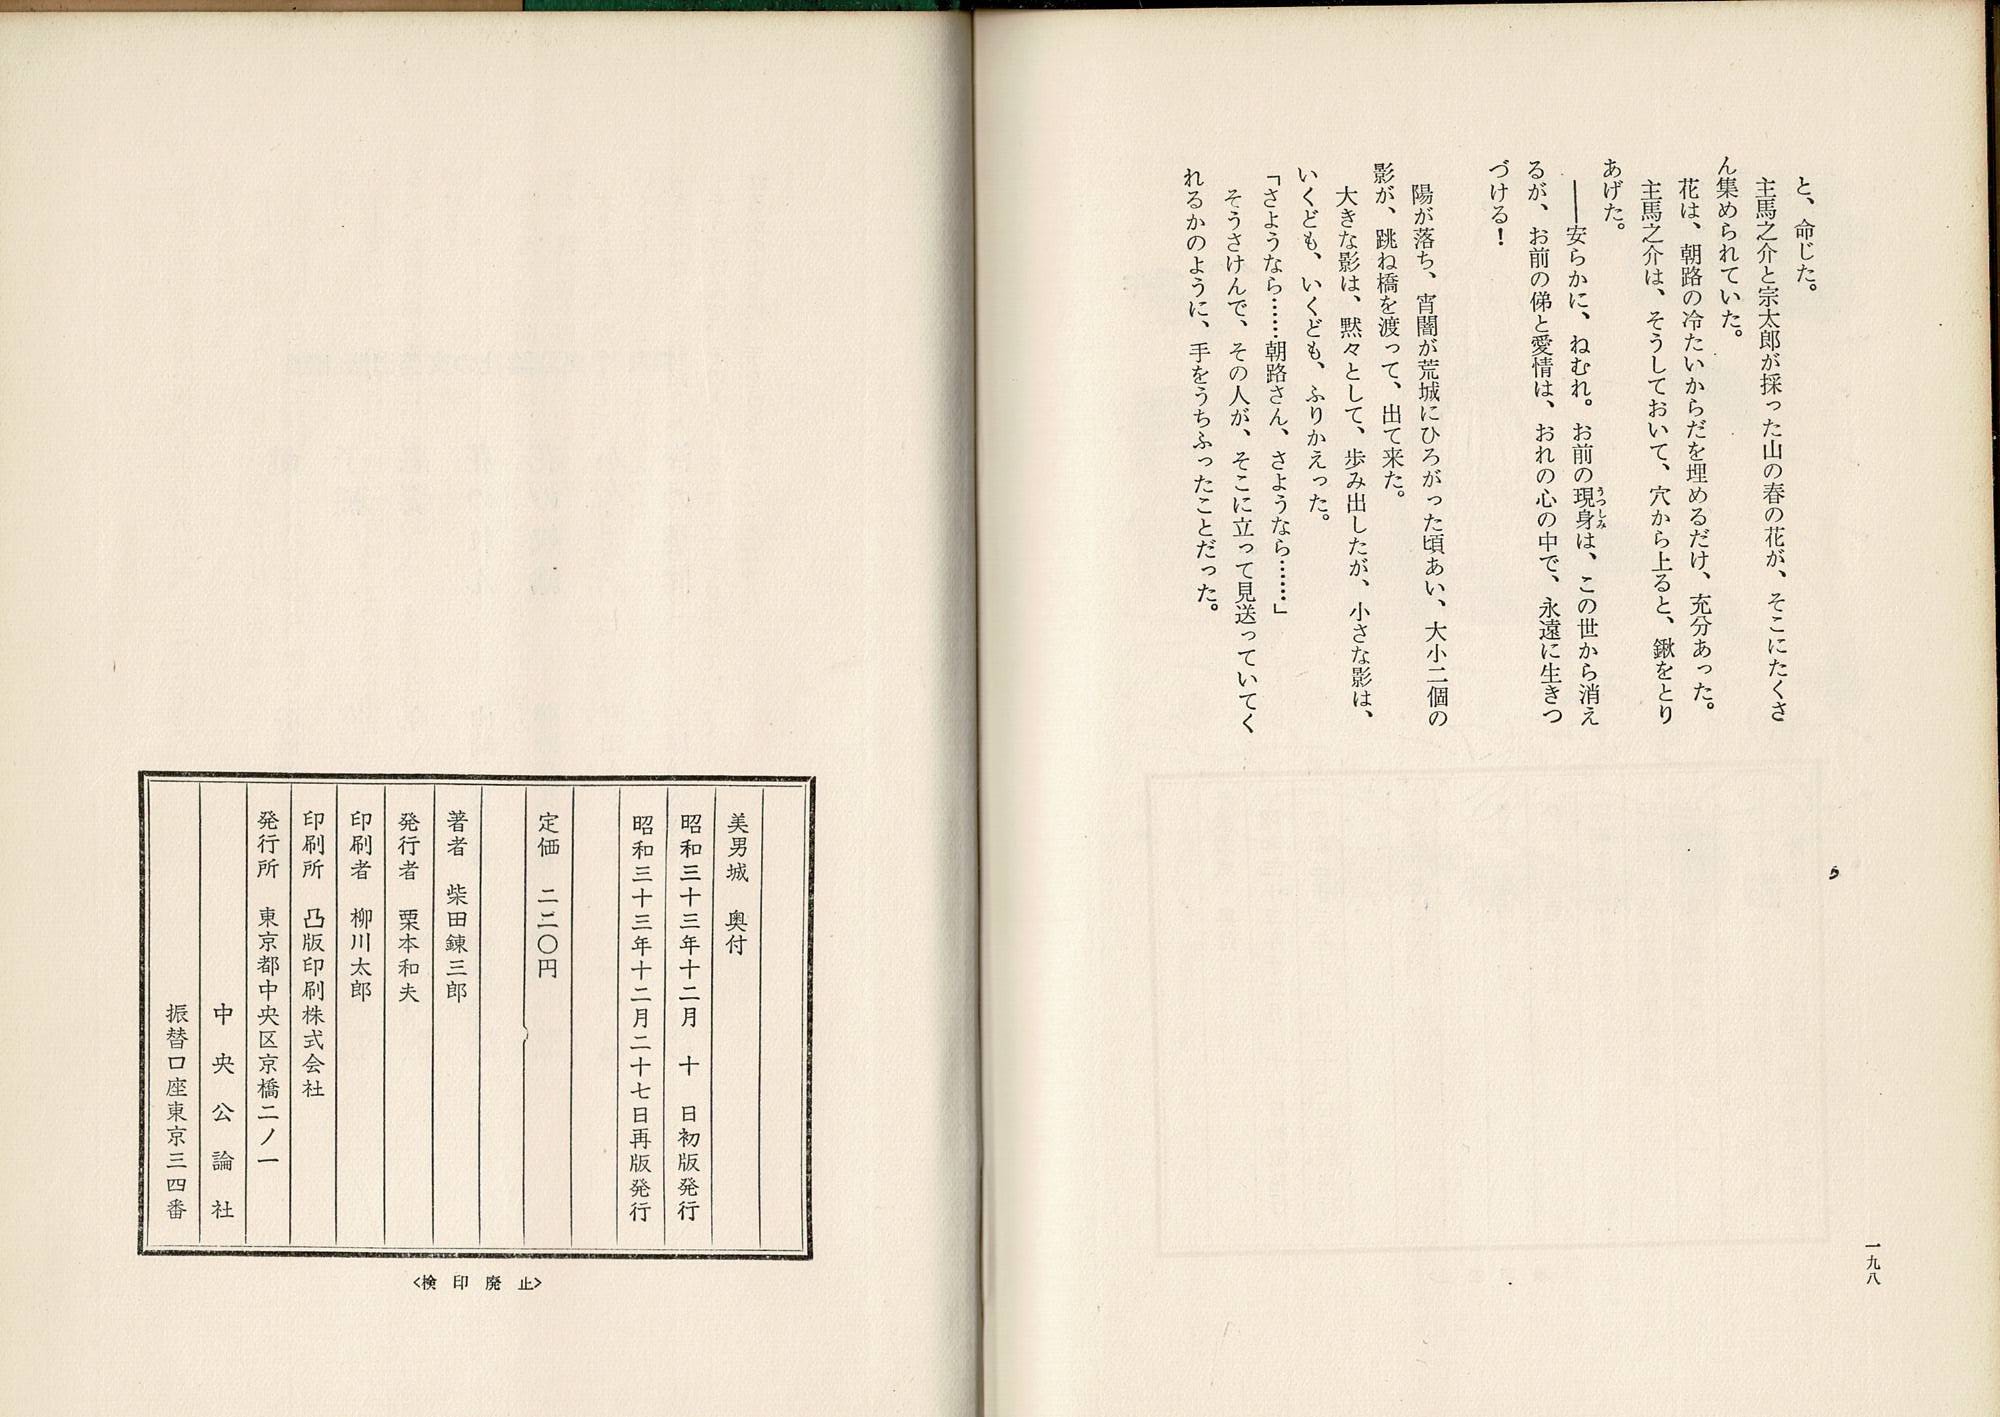 と、命じた。
主馬之介と宗太郎が採った山の春の花が、そこにたくさ
ん集められていた。
花は、朝路の冷たいからだを埋めるだけ、充分あった。
主馬之介は、そうしておいて、穴から上ると、鍬をとり
あげた。
――安らかに、ねむれ。お前の現身は、この世から消え
うつしみ
るが、お前の俤と愛情は、おれの心の中で、永遠に生きつ
づける！
陽が落ち、宵闇が荒城にひろがった頃あい、大小二個の
影が、跳ね橋を渡って、出て来た。
大きな影は、黙々として、歩み出したが、小さな影は、
いくども、いくども、ふりかえった。
「さようなら……朝路さん、さようなら……」
そうさけんで、その人が、そこに立って見送っていてく
れるかのように、手をうちふったことだった。
一九八
美男城　奥付
昭和三十三年十二月　十　日初版発行
昭和三十三年十二月二十七日再版発行
定価　二二〇円
著者　柴田錬三郎
発行者　栗本和夫
印刷者　柳川太郎
印刷所　凸版印刷株式会社
発行所　東京都中央区京橋二ノ一
中央公論社
振替口座東京三四番
<検印廃止>